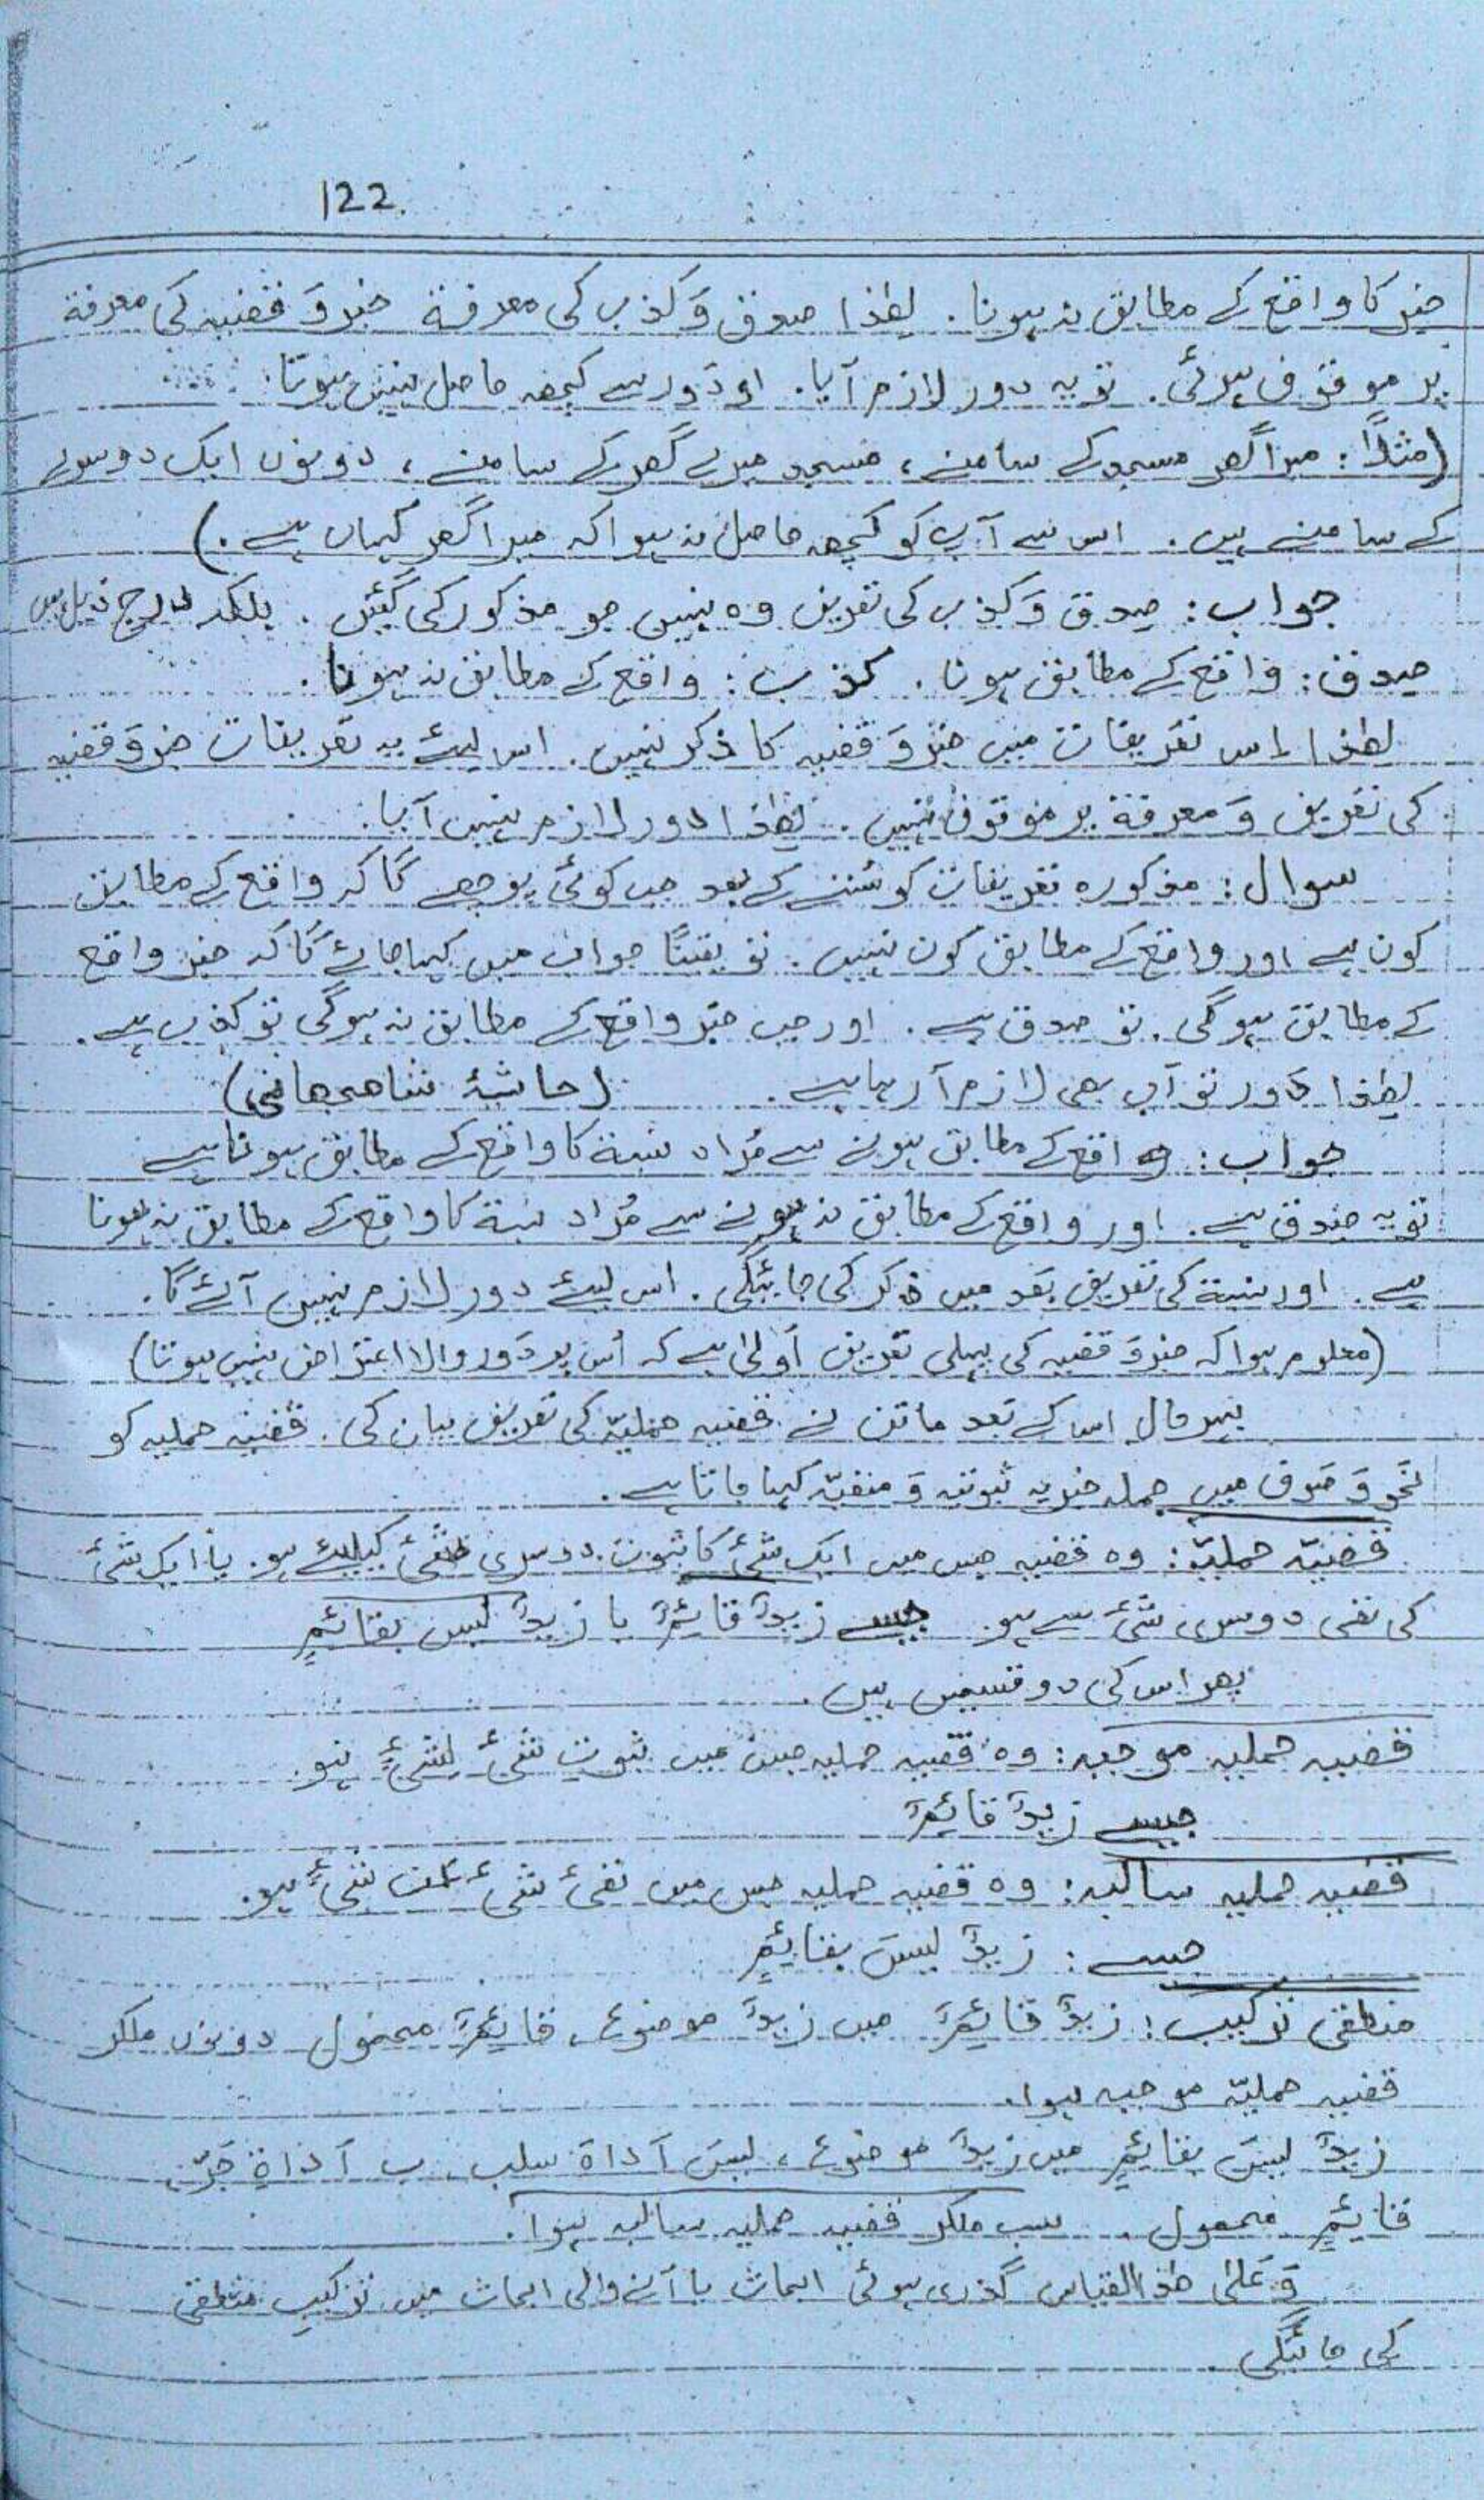 122.
خبر کا واقع کے مطابق نہ ہونا۔ لھٰذا صدق وَ کذب کی معرفۃ خبر وَ قضیہ کی معرفۃ
پر موقوف ہوئی۔ تو یہ دور لازم آیا۔ او دَور سے کچھ حاصل نہیں ہوتا۔
(مثلاً: میرا گھر مسجد کے سامنے، مسجد میرے گھر کے سامنے، دونوں ایک دوسرے
کے سامنے ہیں۔ اس سے آپ کو کچھ حاصل نہ ہوا کہ میرا گھر کہاں ہے۔)
جواب: صدق وَ کذب کی تعریف وہ نہیں جو مذکور کی گئیں۔ بلکہ درج ذیل ہیں
صدق: واقع کے مطابق ہونا۔ کذب: واقع کے مطابق نہ ہونا۔
لھٰذا اس تعریفات میں خبر وَ قضیہ کا ذکر نہیں۔ اس لیئے یہ تعریفات خبر وَ قضیہ
کی تعریف وَ معرفۃ پر موقوف نہیں۔ لھٰذا دور لازم نہیں آیا۔
سوال: مذکورہ تعریفات کو سُننے کے بعد جب کوئی پوچھے گا کہ واقع کے مطابق
کون ہے اور واقع کے مطابق کون نہیں۔ تو یقینًا جواب میں کہا جائے گا کہ خبر واقع
کے مطابق ہوگی۔ تو صدق ہے۔ اور جب خبر واقع کے مطابق نہ ہوگی تو کذب ہے۔
لھٰذا دَور تو اب بھی لازم آرہا ہے۔ (حاشیۂ شاھجھانی)
جواب: واقع کے مطابق ہونے سے مُراد نسبۃ کا واقع کے مطابق ہونا ہے
تو یہ صدق ہے۔ اور واقع کے مطابق نہ ہونے سے مُراد نسبۃ کا واقع کے مطابق نہ ہونا
ہے۔ اور نسبۃ کی تعریف بعد میں ذکر کی جائیگی۔ اس لیئے دور لازم نہیں آئے گا۔
(معلوم ہوا کہ خبر وَ قضیہ کی پہلی تعریف اَولیٰ ہے کہ اُس پر دَور والا اعتراض نہیں ہوتا)
بہر حال اس کے بعد ماتن نے قضیہ حملیّہ کی تعریف بیان کی۔ قضیہ حملیہ کو
نَحو وَ صَرف میں جملہ خبریہ ثبوتیہ وَ منفیّہ کہا جاتا ہے۔
قضیّہ حملیّہ: وہ قضیہ جس میں ایک شئ کا ثبوت دوسری شئ کیلیئے ہو۔ یا ایک شئ
کی نفی دوسری شئ سے ہو۔ جیسے زیدٌ قائمٌ یا زیدٌ لیس بقائمٍ
پھر اس کی دو قسمیں ہیں۔
قضیہ حملیہ موجبہ: وہ قضیہ حملیہ جس میں ثبوتِ شئ لِشئٍ ہو۔
جیسے زیدٌ قائمٌ
قضیہ حملیہ سالبہ: وہ قضیہ حملیہ جس میں نفئ شئ عن شئٍ ہو۔
جیسے: زیدٌ لیسَ بقائمٍ
منطقی ترکیب: زیدٌ قائمٌ میں زیدٌ موضوع، قائمٌ محمول دونوں ملکر
قضیہ حملیّہ موجبہ ہوا۔
زیدٌ لیسَ بقائمٍ میں زیدٌ موضوع، لیسَ اَداۃ سلب، ب اَداۃِ جَرّ،
قائمٍ محمول۔ سب ملکر قضیہ حملیہ سالبہ ہوا۔
وَ عَلیٰ ھٰذا القیاس گذری ہوئی ابحاث یا آنے والی ابحاث میں ترکیب منطقی
کی جائیگی۔